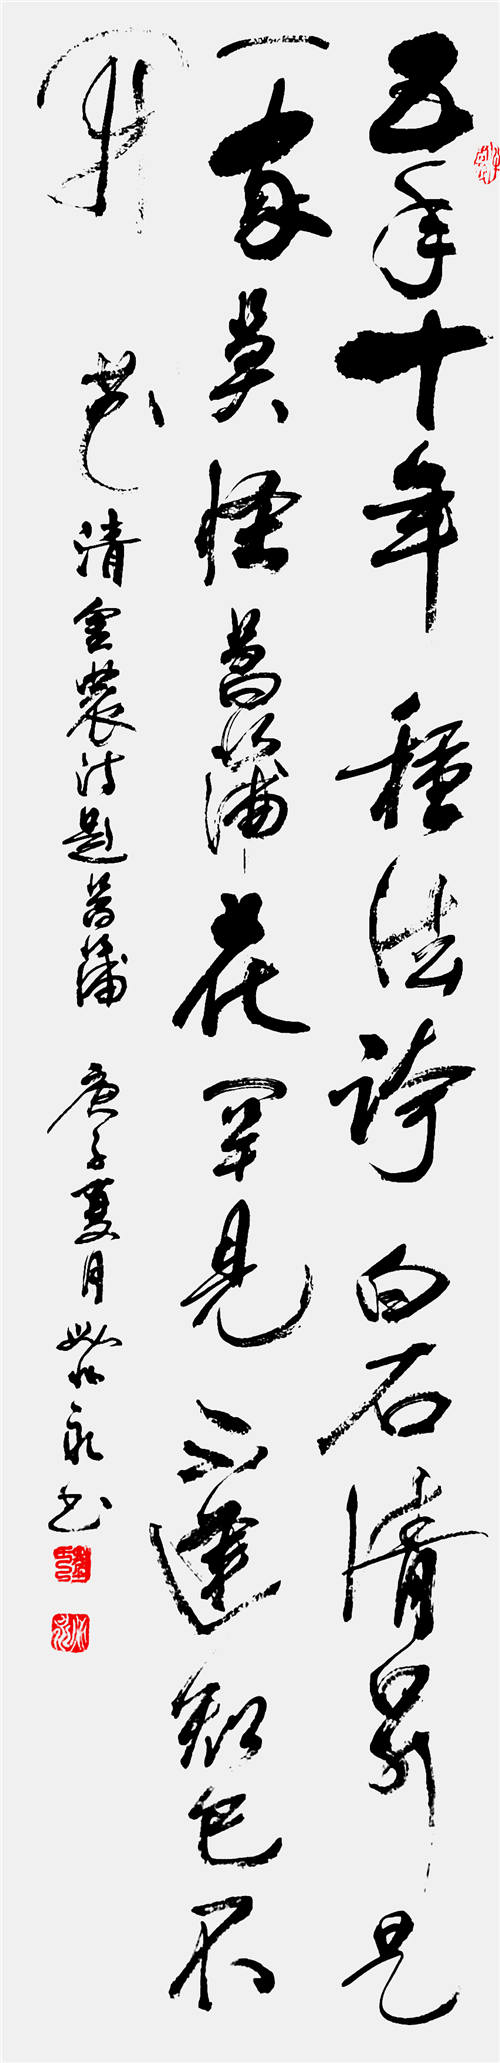 五年十年種法誇白石清泉是
一家莫怪菖蒲花罕見不逢知己不
開花清金農詩題菖蒲庚子夏月永书